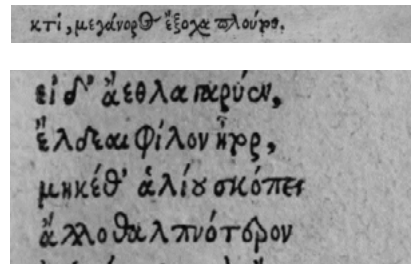 κτί, μεγάνορος ἔξοχα πλούτου.
εἰ δ' ἄεθλα γαρύεν,
ἔλδεαι φίλον ἦτορ,
μηκέθ' ἁλίου σκόπει
ἄλλο θαλπνότερον